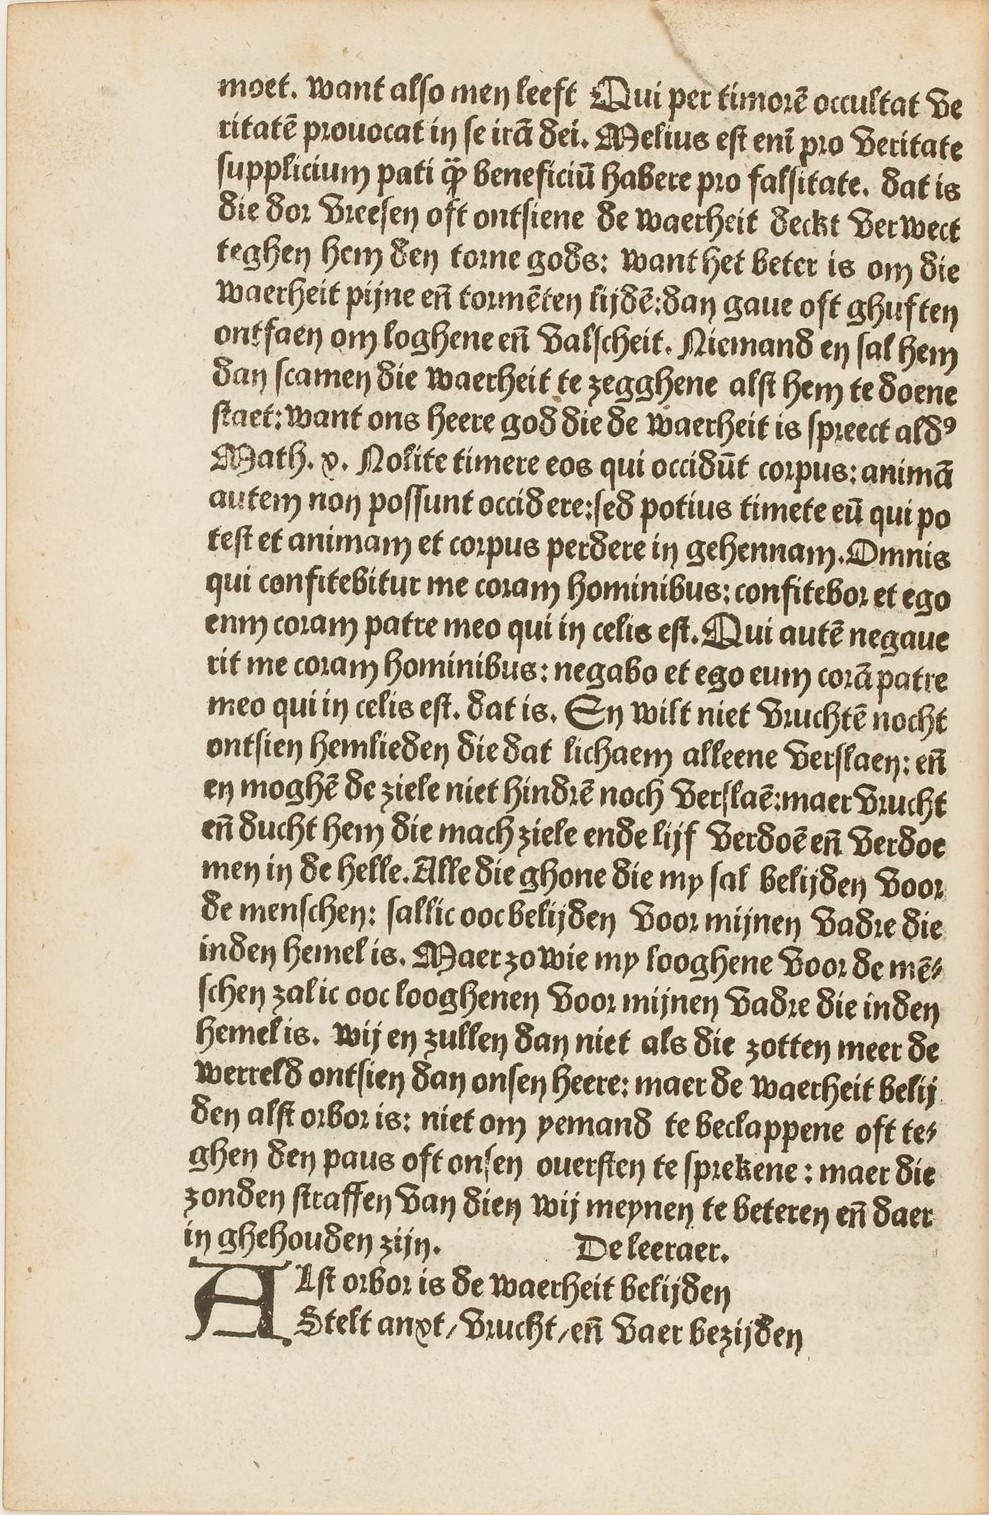 moet. want also men leest Qui per timorē occultat ve
ritatē prouocat in se irā dei. Melius est enī pro veritate
supplicium pati q̄ȝ beneficiū habere pro falsitate. dat is
die dor vreesen oft ontsiene de waerheit deckt verwect
teghen hem den torne gods: want het beter is om die
waerheit pijne eñ tormēten lijdē: dan gaue oft ghiften
ontfaen om loghene eñ valscheit. Niemand en sal hem
dan scamen die waerheit te zegghene alst hem te doene
staet: want ons heere god die de waerheit is spreect aldꝰ
Math. x. Nolite timere eos qui occidūt corpus: animā
autem non possunt occidere: sed potius timete eū qui po
test et animam et corpus perdere in gehennam. Omnis
qui confitebitur me coram hominibus: confitebor et ego
eum coram patre meo qui in celis est. Qui autē negaue
rit me coram hominibus: negabo et ego eum corā patre
meo qui in celis est. dat is. En wilt niet vruchtē nocht
ontsien hemlieden die dat lichaem alleene verslaen: eñ
en moghē de ziele niet hindrē noch verslaē: maer vrucht
eñ ducht hem die mach ziele ende lijf verdoē eñ verdoe
men in de helle. Alle die ghone die my sal belijden voor
de menschen: sallic ooc belijden voor mijnen vadre die
inden hemel is. Maer zo wie my looghene voor de mē⸗
schen zal ic ooc looghenen voor mijnen vadre die inden
hemel is. wij en zullen dan niet als die zotten meer de
werreld ontsien dan onsen heere: maer de waerheit belij
den alst orbor is: niet om yemand te beclappene oft te⸗
ghen den paus oft onsen ouersten te sprekene: maer die
zonden straffen van dien wij meynen te beteren eñ daer
in ghehouden zijn. De leeraer.
Alst orbor is de waerheit belijden
Stelt anxt/ vrucht/ eñ vaer bezijden